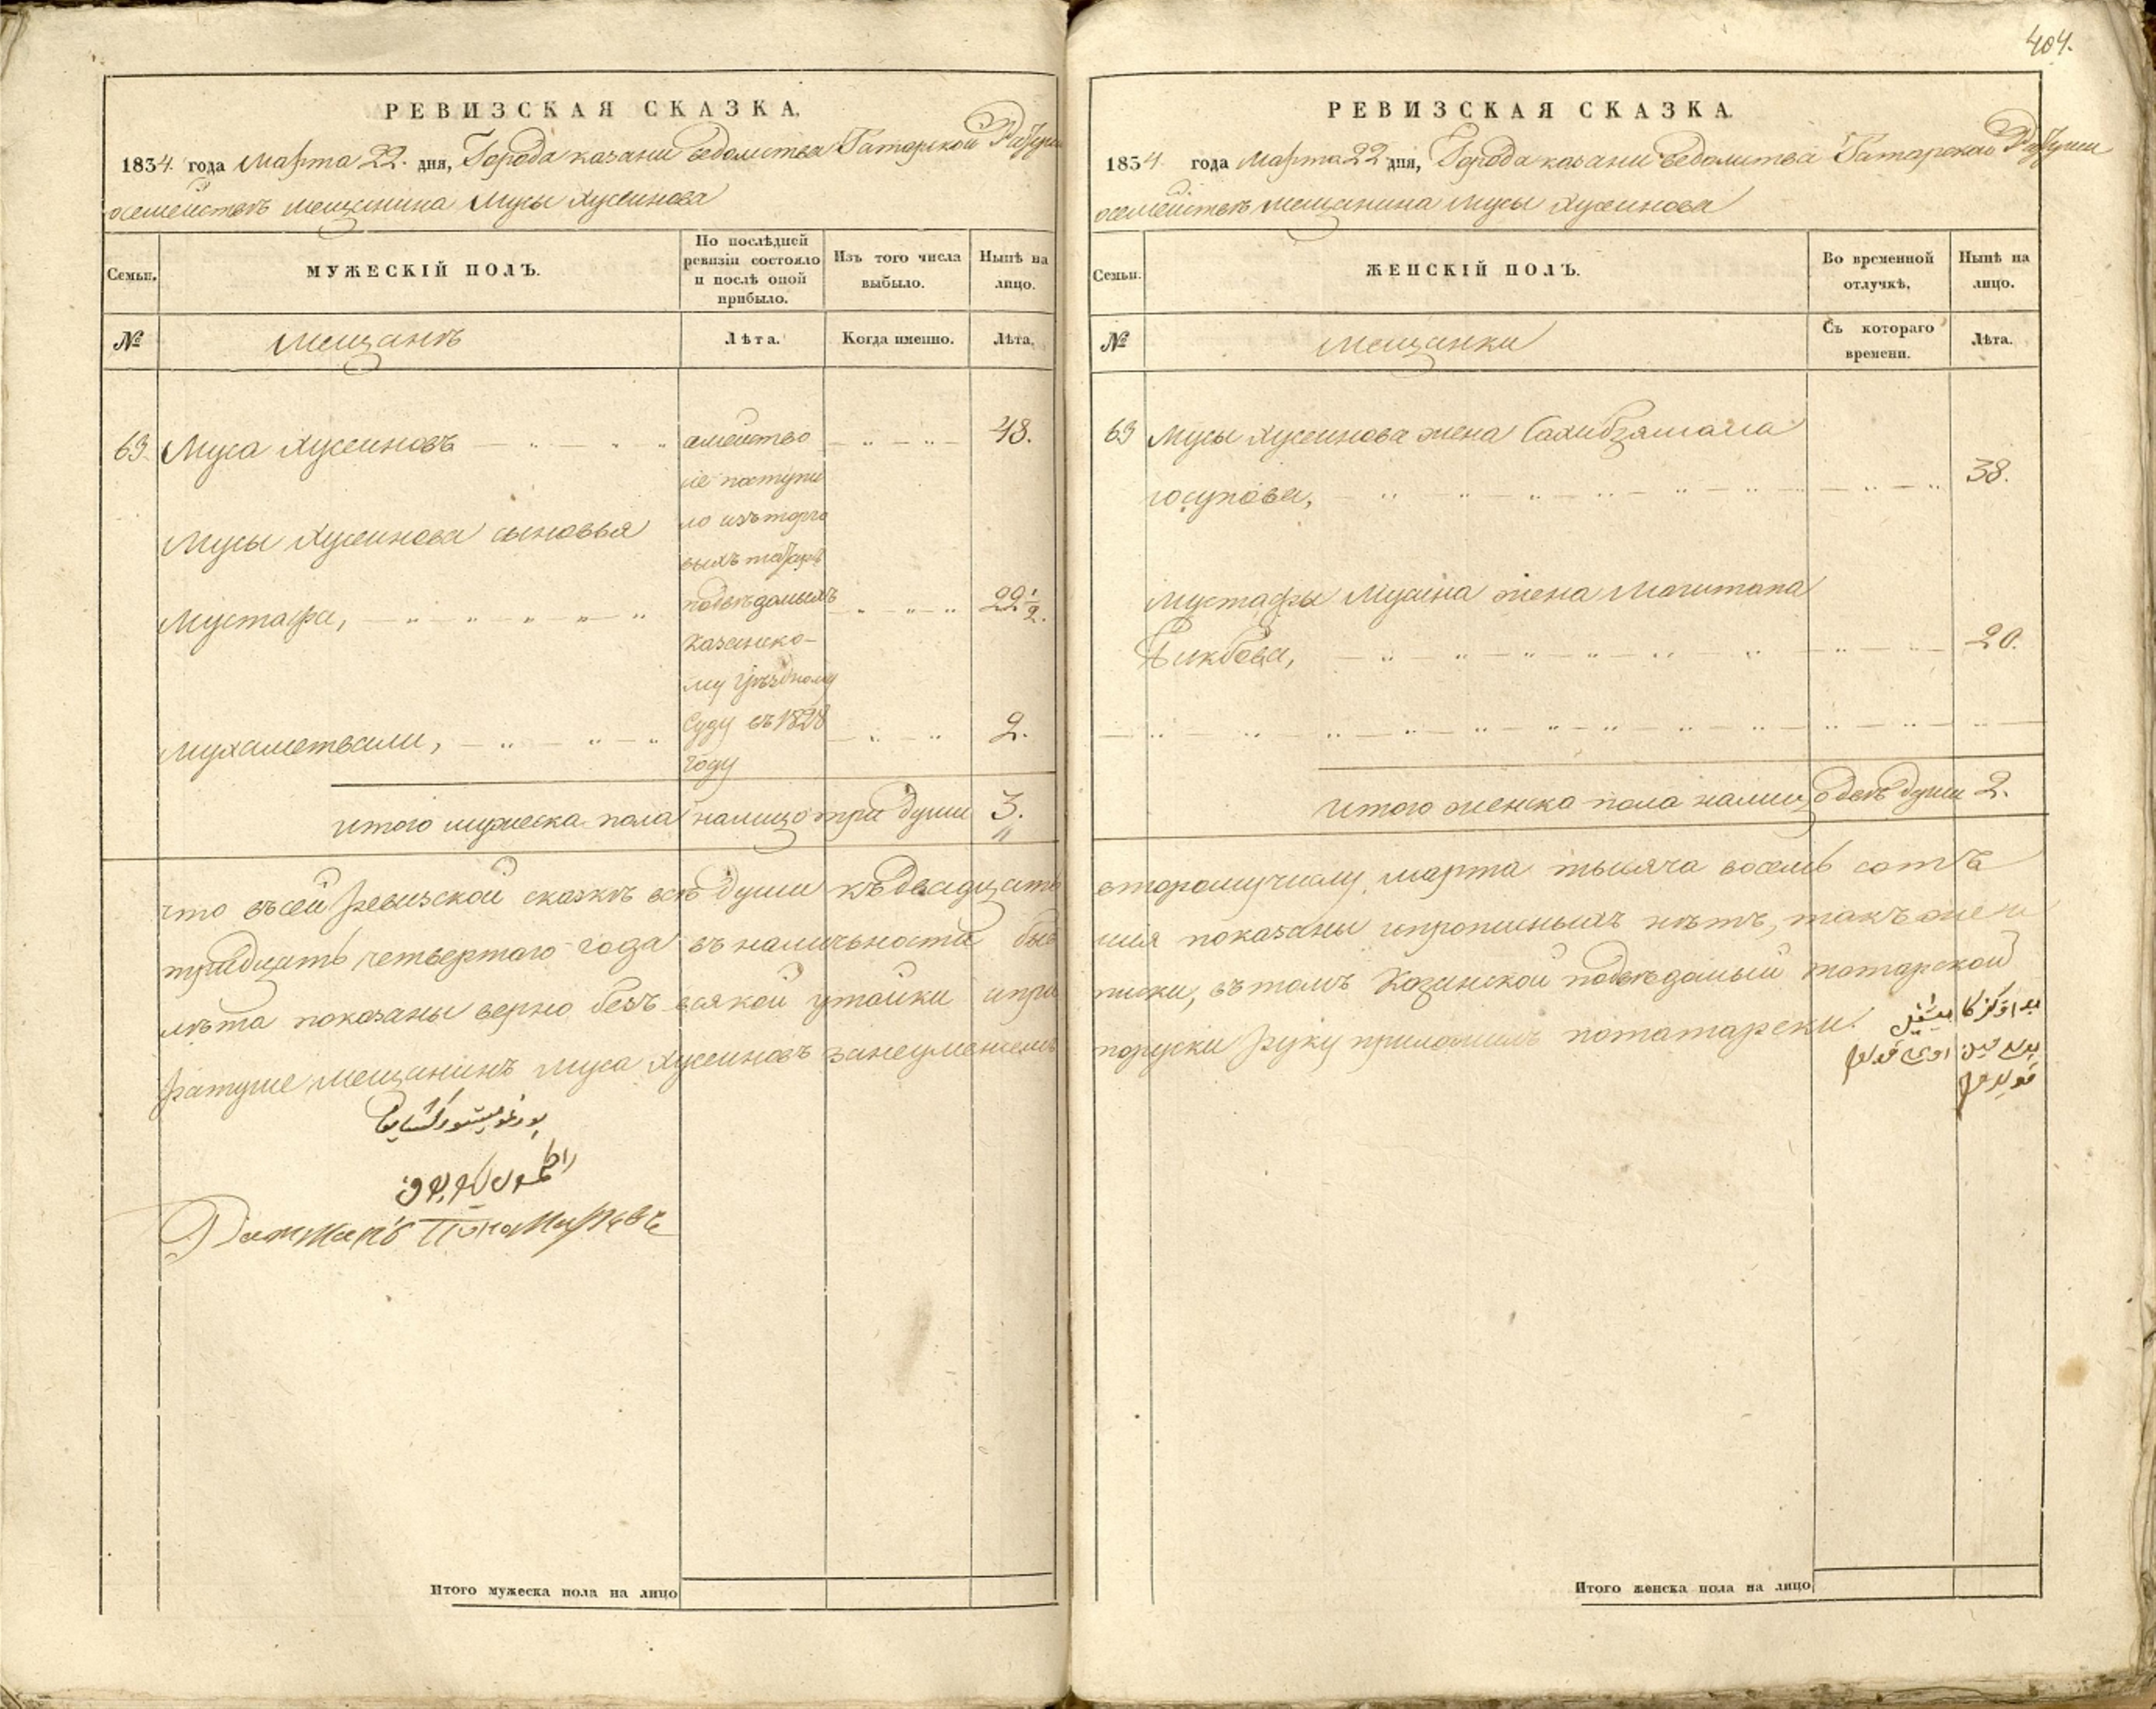 404.
РЕВИЗСКАЯ СКАЗКА.
1834. года Марта 22. дня, Города казани ведомства Татарской Ратуши
осемействе мещанина Мусы Хусеинова
Семьи.
МУЖЕСКІЙ ПОЛЪ.
По послѣдней ревизіи состояло и послѣ оной прибыло.
Изъ того числа выбыло.
Нынѣ на лицо.
№
Мещанъ
Лѣта.
Когда именно.
Лѣта.
63. Муса Хусеиновъ 48.
Мусы Хусеинова сыновья
Мустафа, 22 1/2.
Мухаметвали, 2.
семейство
сіе поступи
ло изъ торго
выхъ татаръ
подведомыхъ
Казанско-
му Уѣздному
Суду въ 1828
году
итого мужеска пола налицо три души 3.
что въсей ревизской сказкѣ всѣ души къ двадцать
тридцать четвертаго года въ наличности
лѣта показаны верно безъ всякой утайки
ратуше мещанинъ Муса Хусеиновъ занеуменіемъ
Итого мужеска пола на лицо
РЕВИЗСКАЯ СКАЗКА.
1834 года Марта 22 дня, Города казани ведомства Татарской Ратуши
осемействе мещанина Мусы Хусеинова
Семьи.
ЖЕНСКІЙ ПОЛЪ.
Во временной отлучкѣ.
Нынѣ на лицо.
№
Мещанки
Съ котораго времени.
Лѣта.
63 Мусы Хусеинова жена Сахибзямала
юсупова, 38.
Мустафы Мусина жена Могитапа
20.
итого женска пола налицо двѣ души 2.
второму числу марта тысяча восемь сотъ
показаны ипрописныхъ нѣтъ, также и
въ томъ Казанской подвѣдомый татарской
поруски руку приложилъ потатарски.
Итого женска пола на лицо